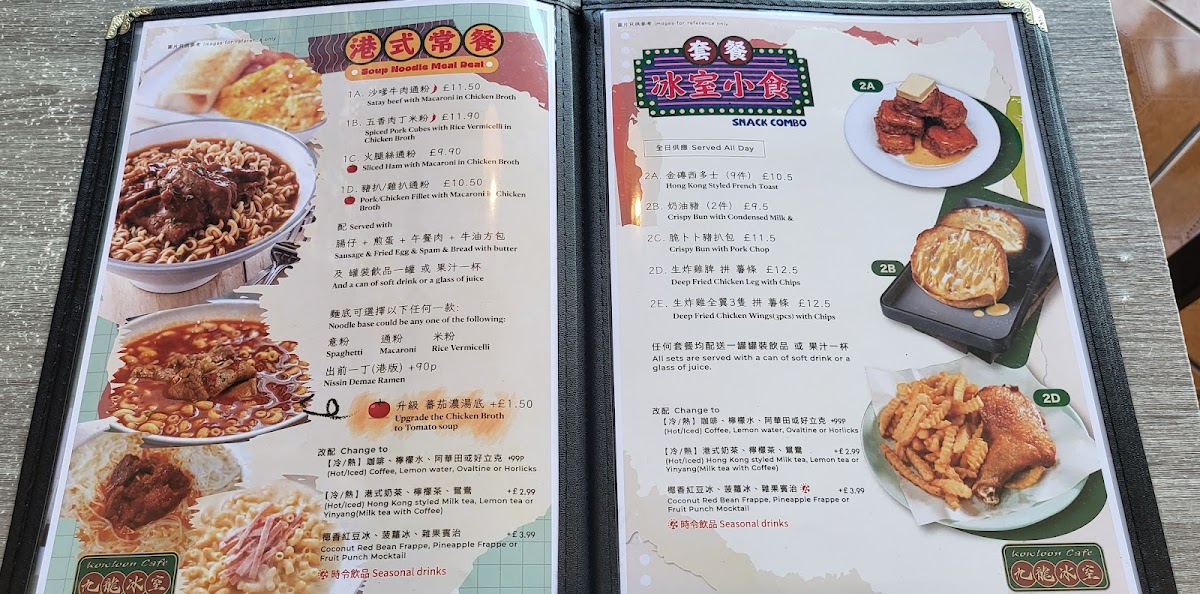 圖片只供參考 images for reference only
港式常餐
Soup Noodle Meal Deal
1A. 沙嗲牛肉通粉 £11.50
Satay beef with Macaroni in Chicken Broth
1B. 五香肉丁米粉 £11.90
Spiced Pork Cubes with Rice Vermicelli in
Chicken Broth
1C. 火腿絲通粉 £9.90
Sliced Ham with Macaroni in Chicken Broth
1D. 豬扒/雞扒通粉 £10.50
Pork/Chicken Fillet with Macaroni in Chicken
Broth
配 Served with
腸仔 + 煎蛋 + 午餐肉 + 牛油方包
Sausage & Fried Egg & Spam & Bread with butter
及 罐裝飲品一罐 或 果汁一杯
And a can of soft drink or a glass of juice
麵底可選擇以下任何一款:
Noodle base could be any one of the following:
意粉 通粉 米粉
Spaghetti Macaroni Rice Vermicelli
出前一丁(港版) +90p
Nissin Demae Ramen
升級 蕃茄濃湯底 +£1.50
Upgrade the Chicken Broth
to Tomato soup
改配 Change to
【冷/熱】咖啡、檸檬水、阿華田或好立克 +99P
(Hot/Iced) Coffee, Lemon water, Ovaltine or Horlicks
【冷/熱】港式奶茶、檸檬茶、鴛鴦 +£2.99
(Hot/Iced) Hong Kong styled Milk tea, Lemon tea or
Yinyang(Milk tea with Coffee)
椰香紅豆冰、菠蘿冰、雜果賓治 +£3.99
Coconut Red Bean Frappe, Pineapple Frappe or
Fruit Punch Mocktail
時令飲品 Seasonal drinks
Kowloon Cafe
九龍冰室
圖片只供參考 images for reference only
套餐
冰室小食
SNACK COMBO
全日供應 Served All Day
2A. 金磚西多士（9件） £10.5
Hong Kong Styled French Toast
2B. 奶油豬（2件） £9.5
Crispy Bun with Condensed Milk &
2C. 脆卜卜豬扒包 £11.5
Crispy Bun with Pork Chop
2D. 生炸雞脾 拼 薯條 £12.5
Deep Fried Chicken Leg with Chips
2E. 生炸雞全翼3隻 拼 薯條 £12.5
Deep Fried Chicken Wings(3pcs) with Chips
任何套餐均配送一罐罐裝飲品 或 果汁一杯
All sets are served with a can of soft drink or a
glass of juice.
改配 Change to
【冷/熱】咖啡、檸檬水、阿華田或好立克 +99P
(Hot/Iced) Coffee, Lemon water, Ovaltine or Horlicks
【冷/熱】港式奶茶、檸檬茶、鴛鴦 +£2.99
(Hot/Iced) Hong Kong styled Milk tea, Lemon tea or
Yinyang(Milk tea with Coffee)
椰香紅豆冰、菠蘿冰、雜果賓治 +£3.99
Coconut Red Bean Frappe, Pineapple Frappe or
Fruit Punch Mocktail
時令飲品 Seasonal drinks
2A
2B
2D
Kowloon Cafe
九龍冰室